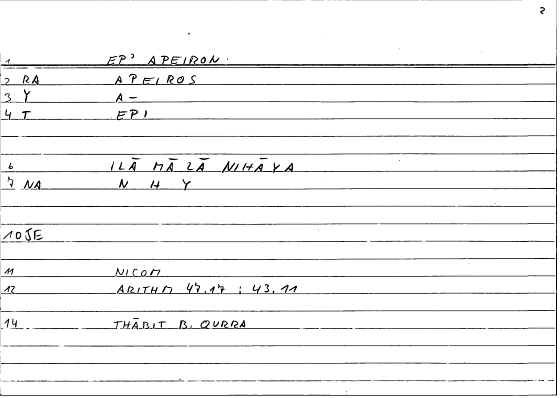 2
1 EP' APEIRON.
2 RA APEIROS
3 Y A-
4 T EPI
6 ILĀ MĀ LĀ NIHĀYA
7 NA N H Y
10 JE
11 NICOM
12 ARITHM 47.17 ; 43.11
14 THĀBIT B. QURRA